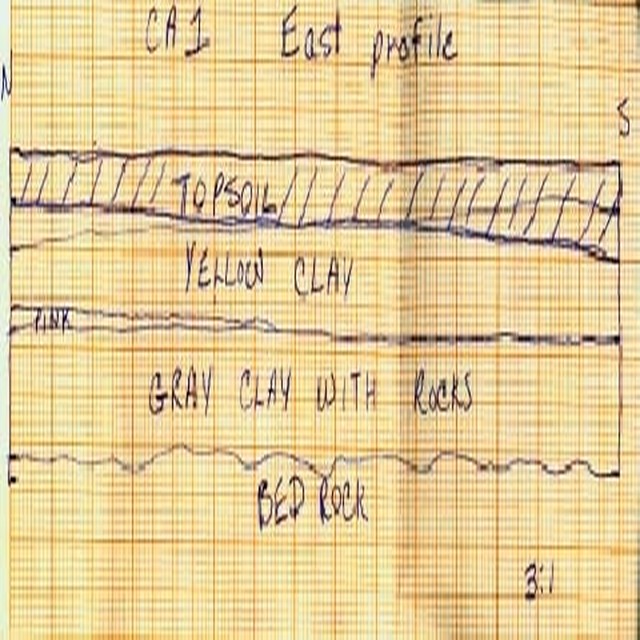 CA1 East profile
N
S
TOPSOIL
YELLOW CLAY
PINK
GRAY CLAY WITH ROCKS
BED ROCK
3:1